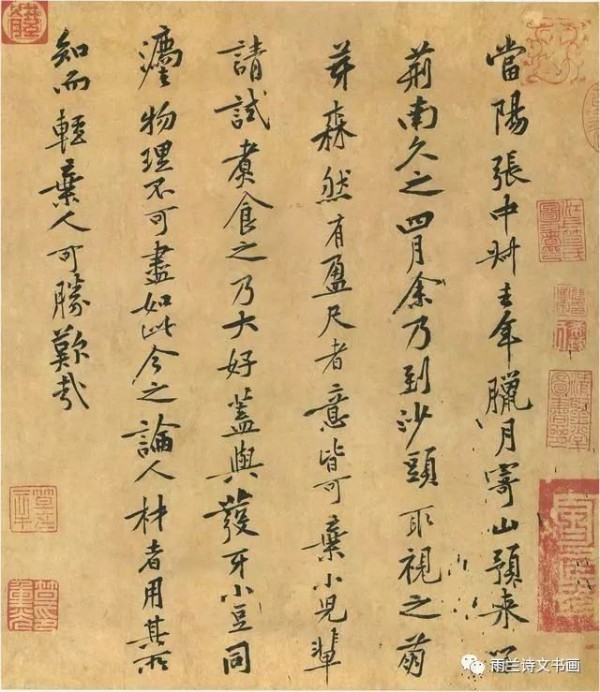 當陽張中叔去年臘月寄山預來留
荊南久之四月余乃到沙頭取視之萌
芽森然有盈尺者意皆可棄小兒輩
請試煮食之乃大好蓋與發牙小豆同
灋物理不可盡如此今之論人材者用其所
知而輕棄人可勝歎哉
雨兰诗文书画